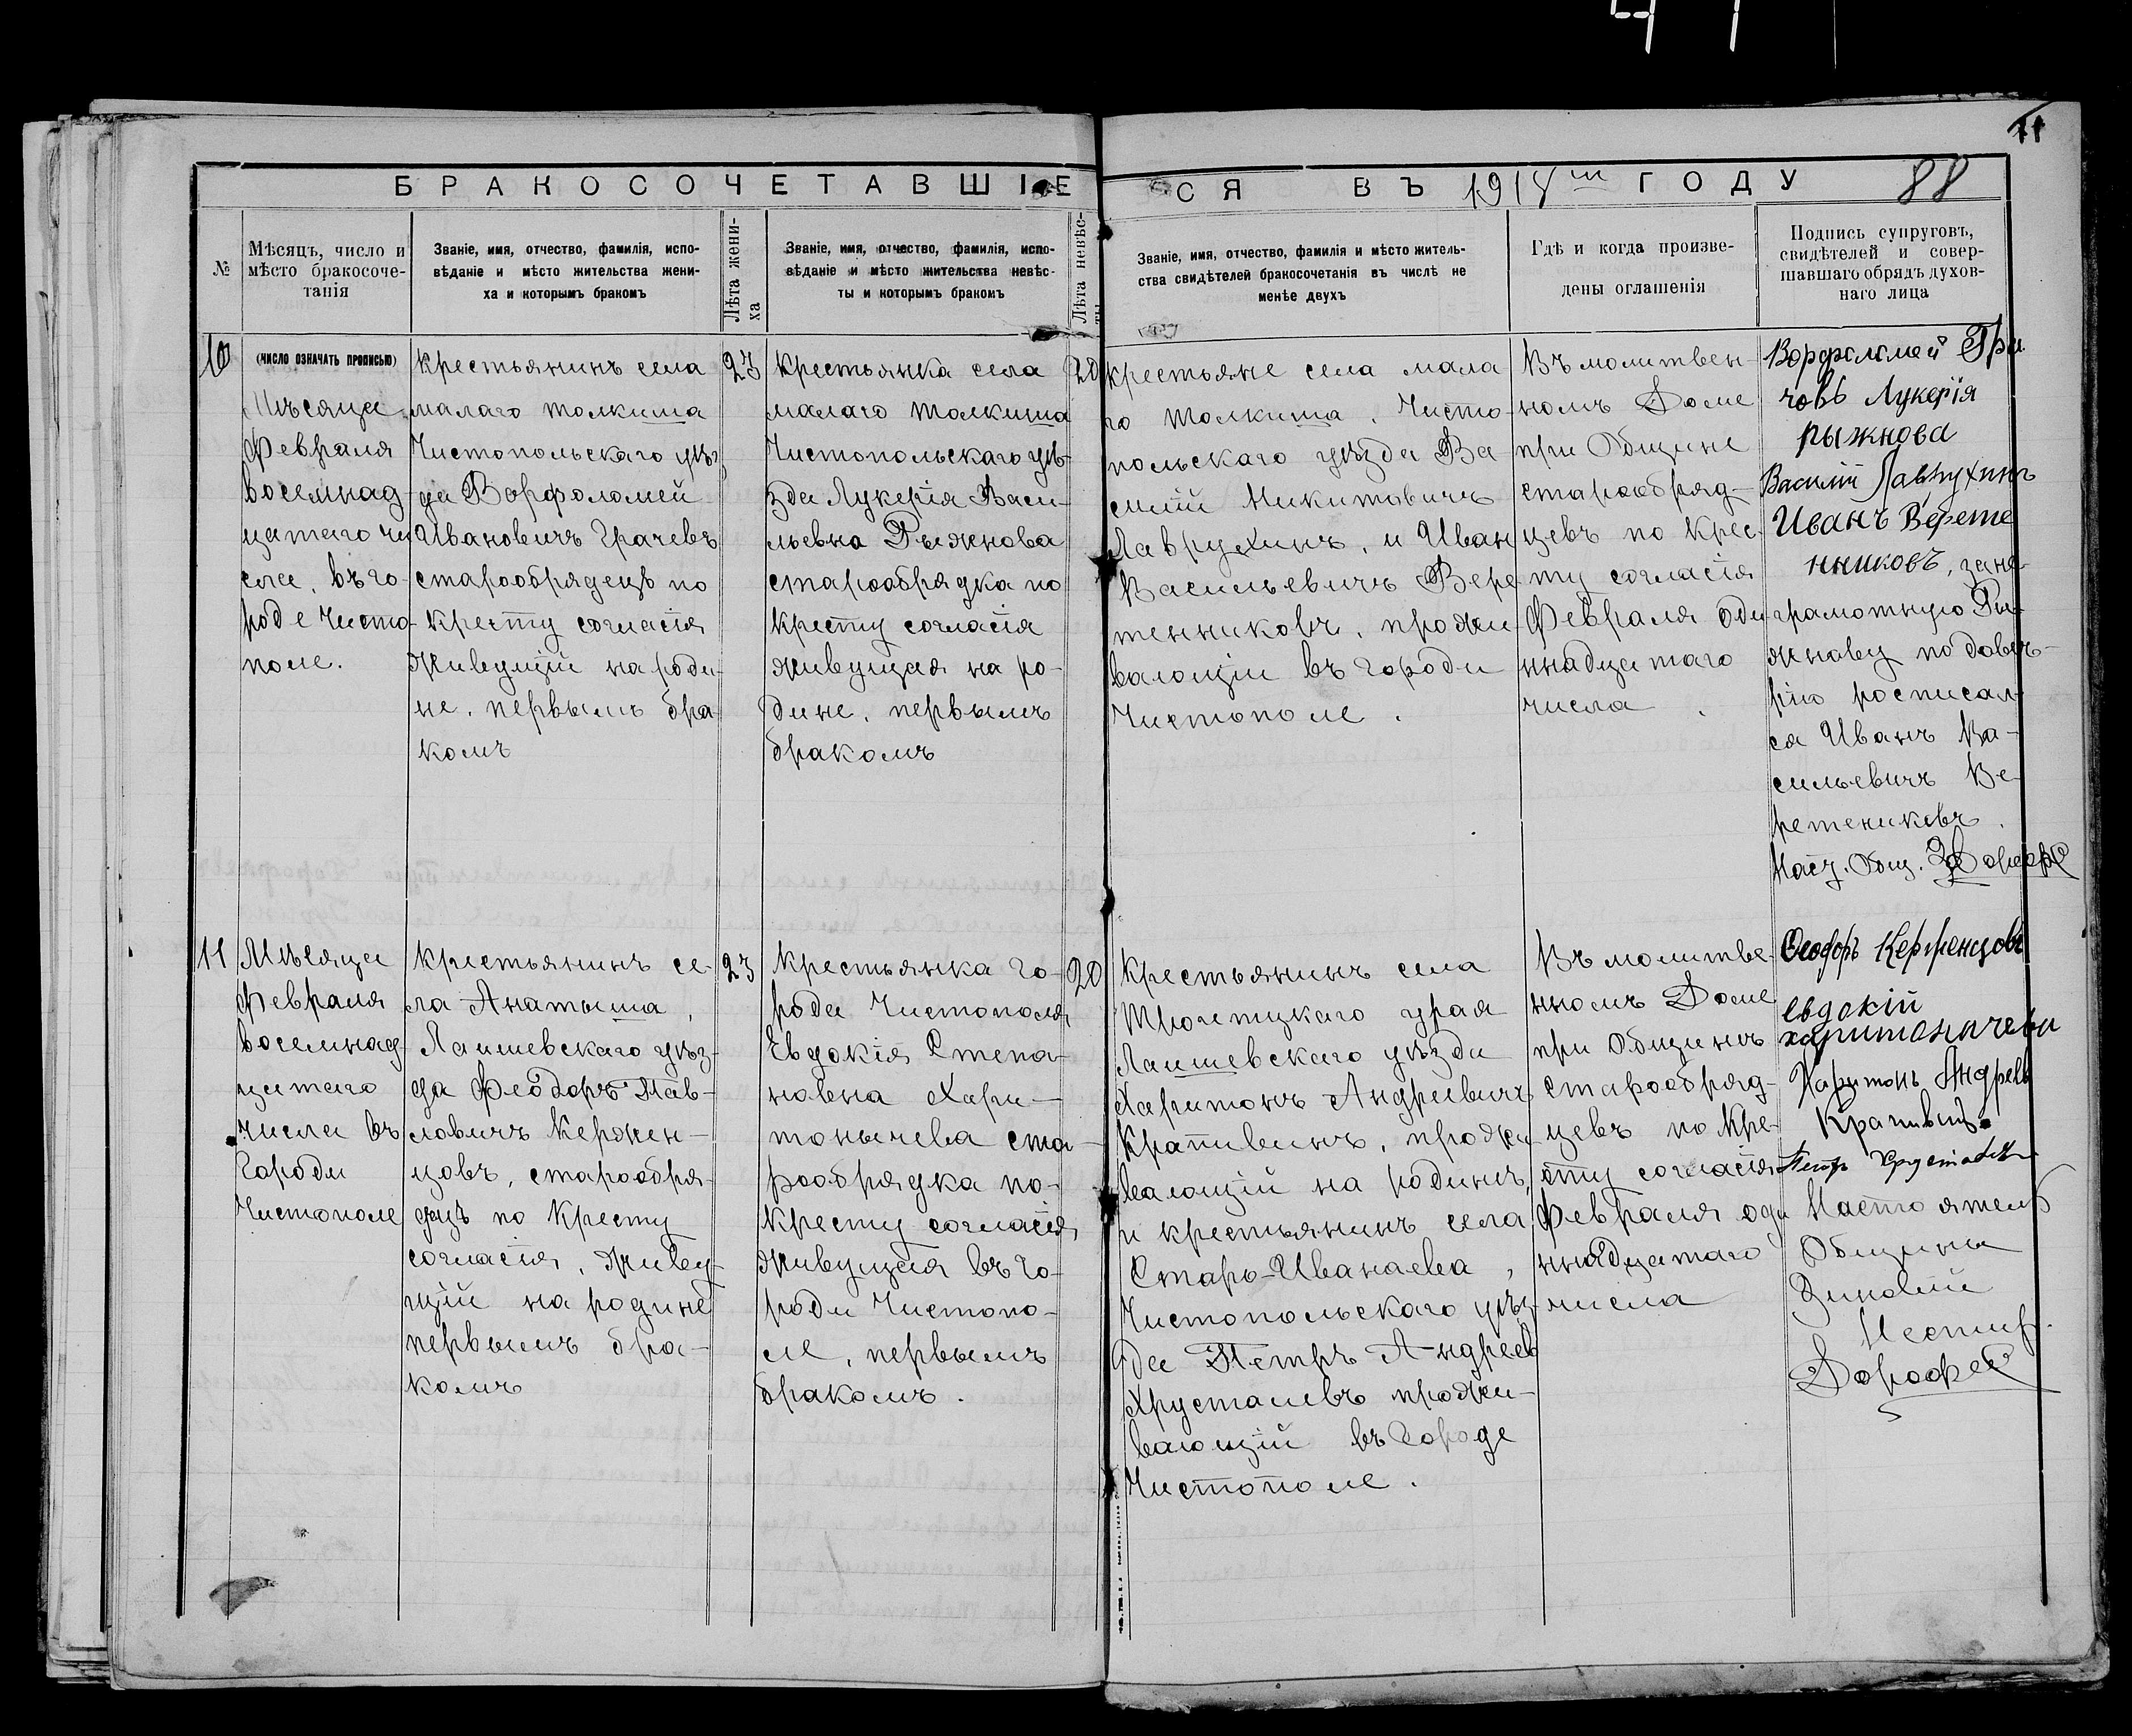 11
БРАКОСОЧЕТАВШІЕСЯ ВЪ 1914 ГОДУ
88
№
Мѣсяцъ, число и
мѣсто бракосоче-
танія
Званіе, имя, отчество, фамилія, испо-
вѣданіе и мѣсто жительства жени-
ха и которымъ бракомъ
Лѣта жени-
ха
Званіе, имя, отчество, фамилія, испо-
вѣданіе и мѣсто жительства невѣс-
ты и которымъ бракомъ
Лѣта невѣс-
ты
Званіе, имя, отчество, фамилія и мѣсто житель-
ства свидѣтелей бракосочетанія въ числѣ не
менѣе двухъ
Гдѣ и когда произве-
дены оглашенія
Подпись супруговъ,
свидѣтелей и совер-
шавшаго обрядъ духов-
наго лица
10
(число означать прописью)
Мѣсяца
Февраля
восемнад-
цатаго чи
сла, въ го-
роде Чисто-
поле.
крестьянинъ села
малаго толкиша
Чистопольскаго уѣз
да Ворфоломей
Ивановичъ Грачевъ
старообрядецъ по
кресту согласія
живущій на роди-
не, первымъ бра
комъ
23
крестьянка села
малаго толкиша
Чистопольскаго уѣ-
зда Лукерія Васи-
льевна Рыжнова
старообрядка по
кресту согласія
живущая на ро-
дине, первымъ
бракомъ
20
крестьяне села мала
го толкиша, Чисто-
польскаго уѣзда Ва-
силій Никитовичъ
Лаврухинъ, и Иван
Васильевичъ Вере
тенниковъ, прожи-
вающіи въ городи
Чистополе.
Въ молитвен-
номъ Доме
при Общине
старообряд-
цевъ по крес-
ту согласія
Февраля оди
ннадцатаго
числа.
Ворфоломей Гра
човъ Лукерія
рыжнова
Василій Лаврухинъ
Иванъ Верете
нниковъ, за не-
грамотную Ры-
жнову по довѣ-
рію росписал
ся Иванъ Ва-
сильевичъ Ве-
ретениковъ.
Наст. Общ. З Дорофе
11
Мѣсяца
Февраля
восемнад-
цатаго
числа въ
Городи
Чистополе
крестьянинъ се-
ла Анатыша,
Лаишевскаго уѣз-
да Феодоръ Пав-
ловичъ Кержен-
цовъ, старообря-
децъ по кресту
согласія, живу-
щій на родине
первымъ бра-
комъ
23
крестьянка го-
рода Чистополя
Евдокія Степа-
новна Хари-
тонычева ста-
рообрядка по-
кресту согласія
живущая въ го-
роди Чистопо-
ле, первымъ
бракомъ.
20
крестьянинъ села
Троитцкаго урая
Лаишевскаго уѣзда
Харитонъ Андреивичъ
Крапивинъ, прожи
вающій на родинѣ,
и крестьянинъ села
Старо-Иванаева,
Чистопольскаго уѣз-
да Петръ Андреев
Хрусталевъ прожи-
вающій въ городе
Чистополе.
Въ молитве-
нномъ Доме
при Общинѣ
старообряд-
цевъ по Кре-
сту согласія
Февраля оди
ннадцатаго
числа
Феодоръ Керженцовъ
евдокій
харитонычеви
Харитонъ Андрев
Крапивин
Петръ Хрусталевъ
Настоятель
Общины
Зиновій
Нестир.
Дорофее